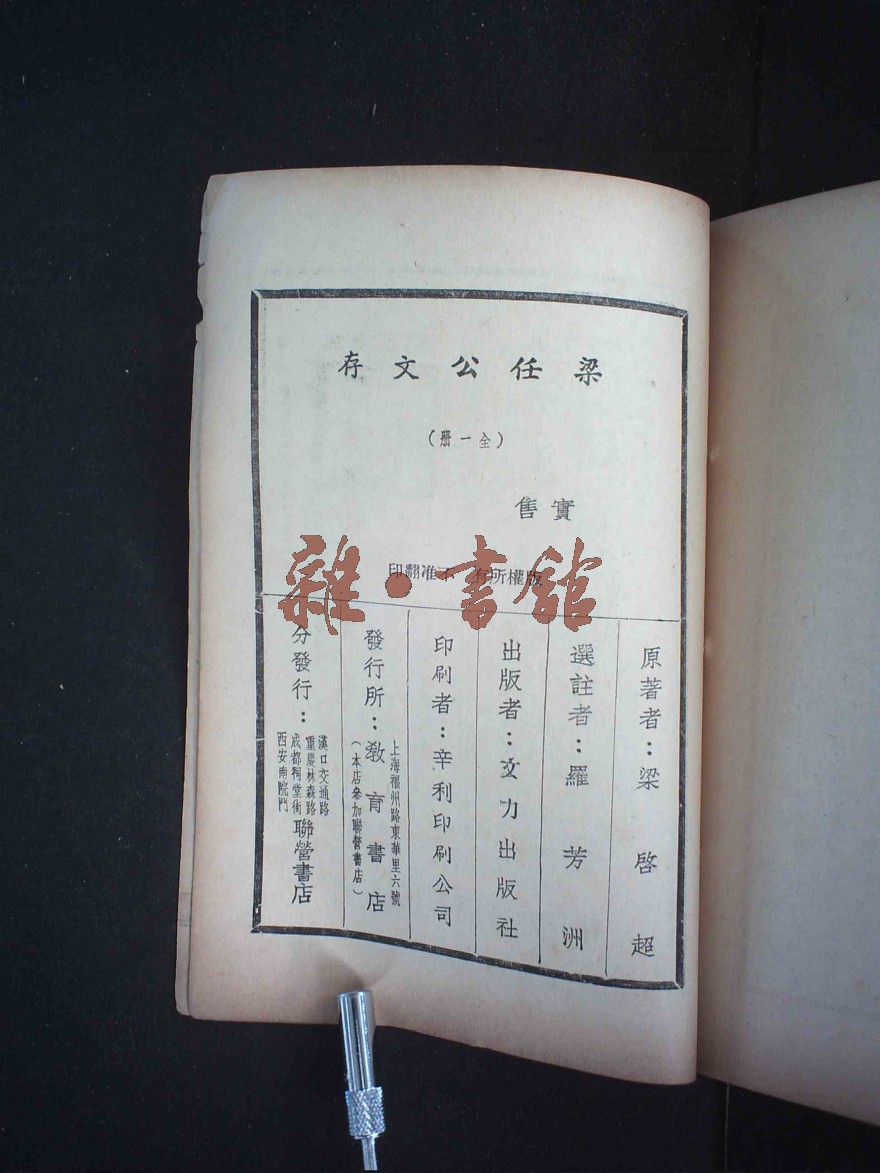 梁任公文存
(全一冊)
實售
版權所有 不准翻印
原著者：梁啓超
選註者：羅芳洲
出版者：文力出版社
印刷者：辛利印刷公司
發行所：教育書店
上海福州路東華里六號
(本店參加聯營書店)
分發行：
漢口交通路
重慶林森路
成都祠堂街
西安南院門
聯營書店
雜·書館